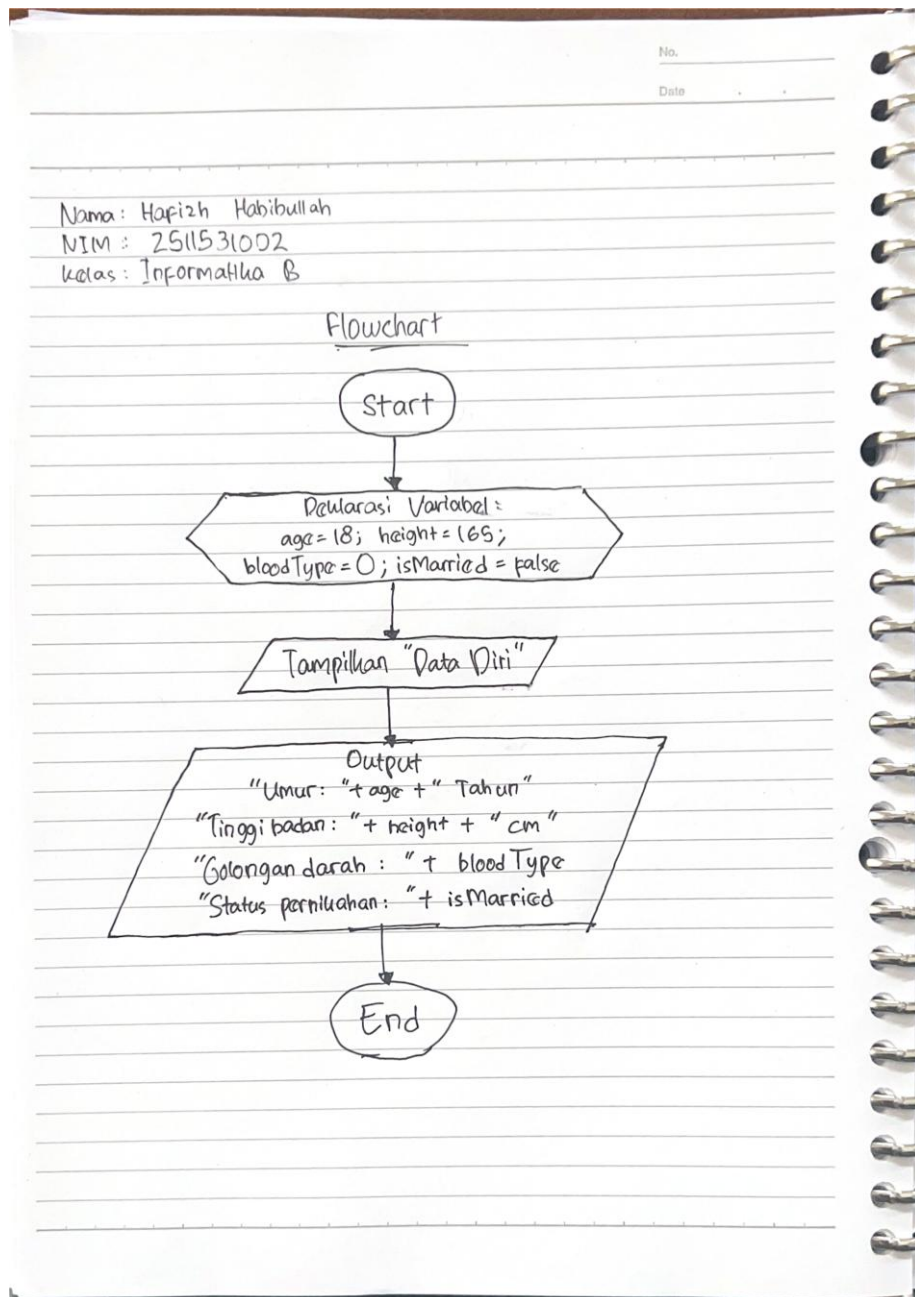 No.
Date
Nama: Hafizh Habibullah
NIM: 2511531002
Kelas: Informatika B
Flowchart
Start
Deklarasi Variabel:
age = 18; height = 165;
bloodType = O; isMarried = false
Tampilkan "Data Diri"
Output
"Umur: " + age + " Tahun"
"Tinggi badan: " + height + " cm"
"Golongan darah: " + bloodType
"Status pernikahan: " + isMarried
End